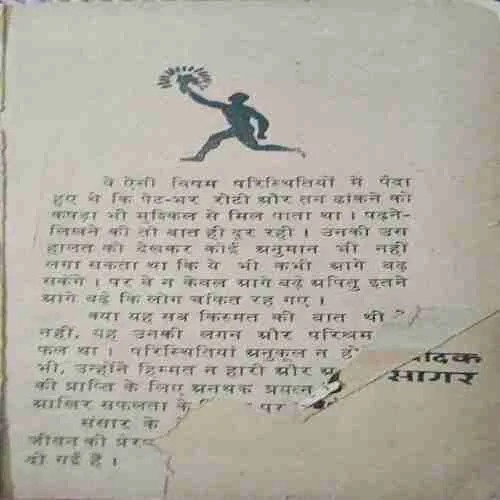 वे ऐसी विषम परिस्थितियों में पैदा
हुए थे कि पेट-भर रोटी और तन ढांकने को
कपड़ा भी मुश्किल से मिल पाता था । पढ़ने-
लिखने की तो बात ही दूर रही । उनकी उस
हालत को देखकर कोई अनुमान भी नहीं
लगा सकता था कि ये भी कभी आगे बढ़
सकेंगे । पर वे न केवल आगे बढ़े अपितु इतने
आगे बढ़े कि लोग चकित रह गए ।
क्या यह सब किस्मत की बात थी ?
नहीं, यह उनकी लगन और परिश्रम
फल था । परिस्थितियां अनुकूल न
भी, उन्होंने हिम्मत न हारी और
की प्राप्ति के लिए अनथक प्रयत्न
सागर
आखिर सफलता के पर
संसार के
जीवन की
दी गई हैं ।